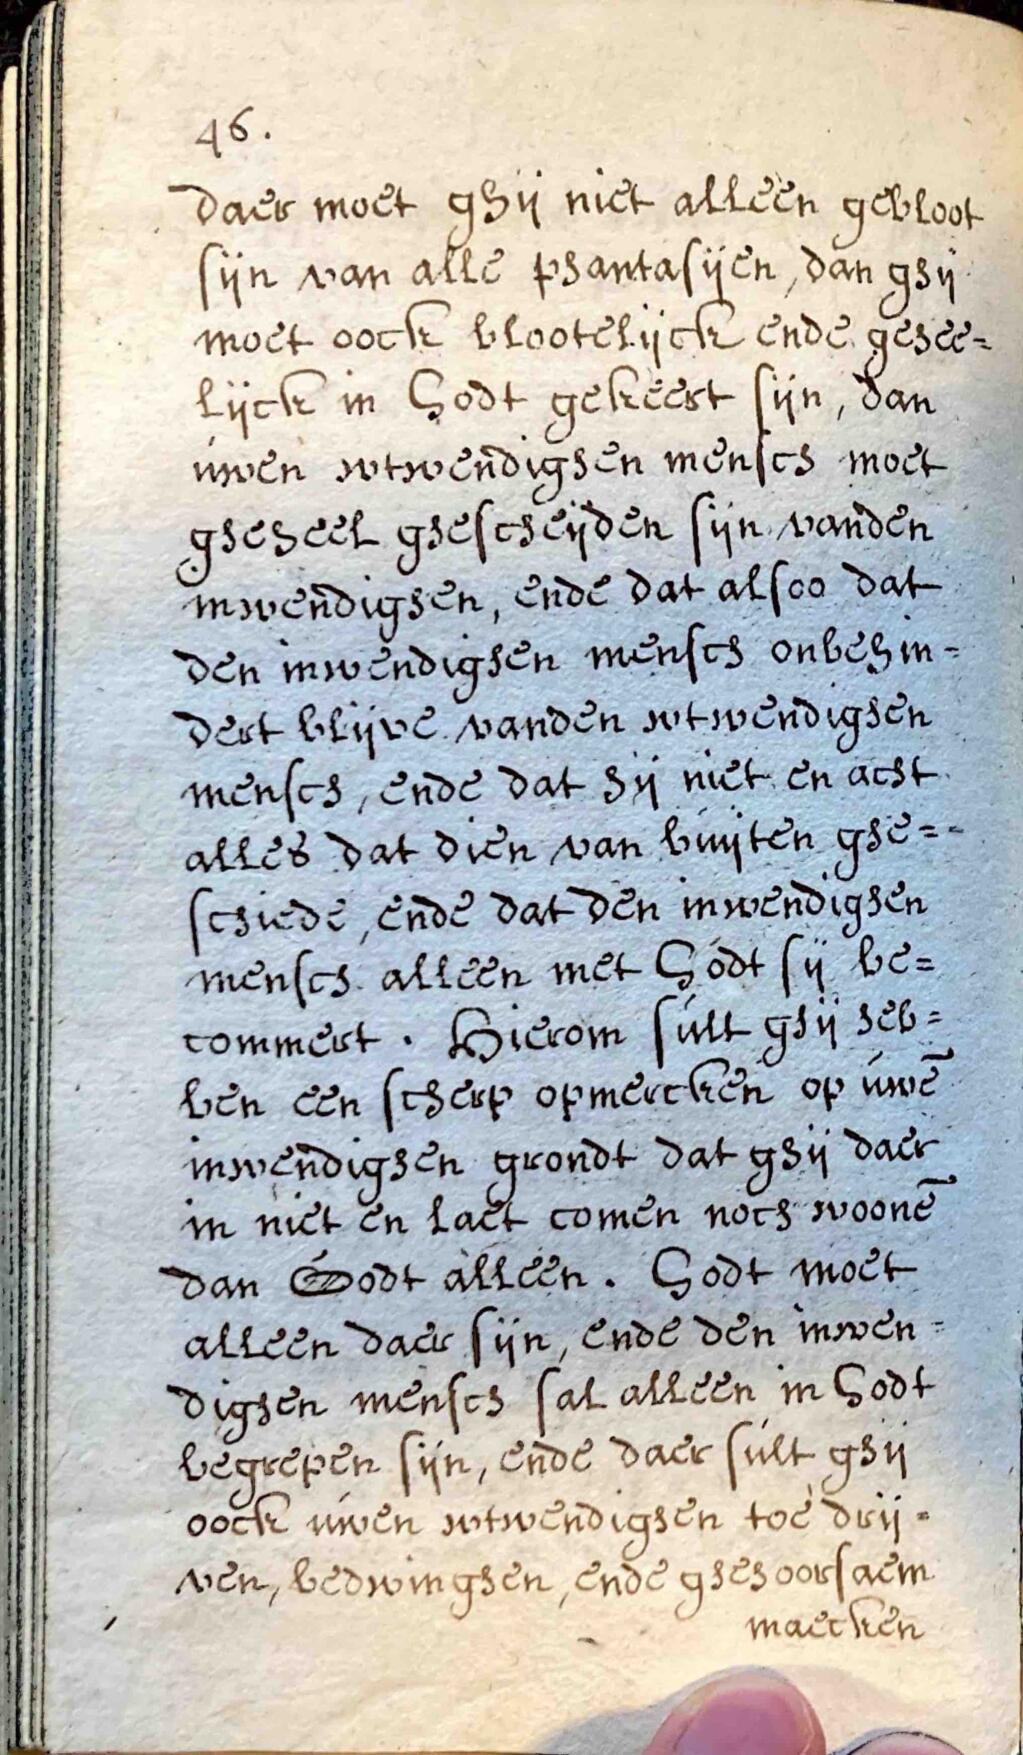 46.
daer moet ghij niet alleen gebloot
sijn van alle phantasijen, dan ghij
moet oock blootelijck ende gehee=
lijck in Godt gekeert sijn, dan
úwen wtwendighen mensch moet
gheheel ghescheijden sijn vanden
inwendighen, ende dat alsoo dat
den inwendighen mensch onbehin=
dert blijve vanden wtwendighen
mensch, ende dat hij niet en acht
alles dat dien van buijten ghe=
schiede, ende dat den inwendighen
mensch alleen met Godt sij be=
commert. Hierom súlt ghij heb=
ben een scherp opmercken op úwē
inwendighen grondt dat ghij daer
in niet en laet comen noch woonē
dan Godt alleen. Godt moet
alleen daer sijn, ende den inwen=
dighen mensch sal alleen in Godt
begrepen sijn, ende daer súlt ghij
oock úwen wtwendighen toe drij=
ven, bedwinghen, ende ghehoorsaem
maecken